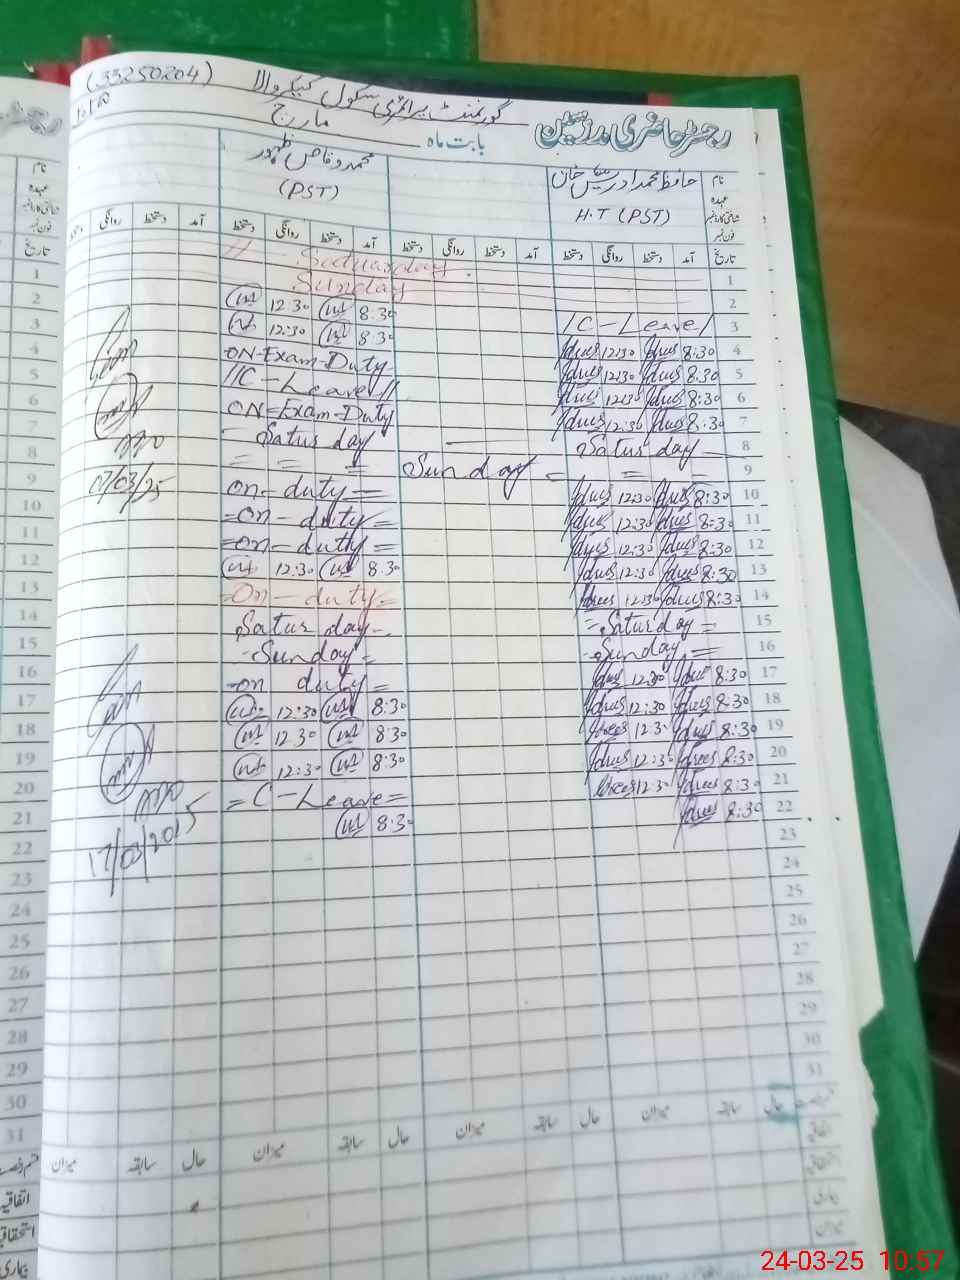 (33250204) گورنمنٹ پرائمری سکول کیکر والا
رجسٹر حاضری مدرسین
بابت ماہ مارچ
نام حافظ محمد ادریس خان
عہدہ H.T (PST)
(PST)
شناختی کارڈ نمبر
فون نمبر
تاریخ آمد دستخط روانگی دستخط آمد دستخط روانگی دستخط آمد دستخط روانگی دستخط آمد دستخط روانگی
1 Saturday
2 Sunday
3 C-Leave 8:30 12:30
4 8:30 12:30 8:30 12:30
5 8:30 12:30 ON-Exam-Duty
6 8:30 12:30 C-Leave
7 8:30 12:30 ON=Exam-Duty
8 Saturday Saturday
9 Sunday
07/03/25
10 8:30 12:30 on-duty=
11 8:30 12:30 =on-duty=
12 8:30 12:30 =on-duty=
13 8:30 12:30 8.30 12:30
14 8:30 12:30 =On-duty=
15 =Saturday= Saturday-
16 -Sunday= -Sunday=
17 8:30 12:30 -on duty=
18 8:30 12:30 8:30 12:30
19 8:30 12:30 8:30 12:30
20 8:30 12:30 8:30 12:30
21 8:30 12:30 =C-Leave=
22 8:30 8:30
17/03/2025
23
24
25
26
27
28
29
30
31
حال سابقہ میزان حال سابقہ میزان حال سابقہ میزان حال سابقہ میزان
اتفاقیہ
استحقاقیہ
بیماری
میزان
24-03-25 10:57